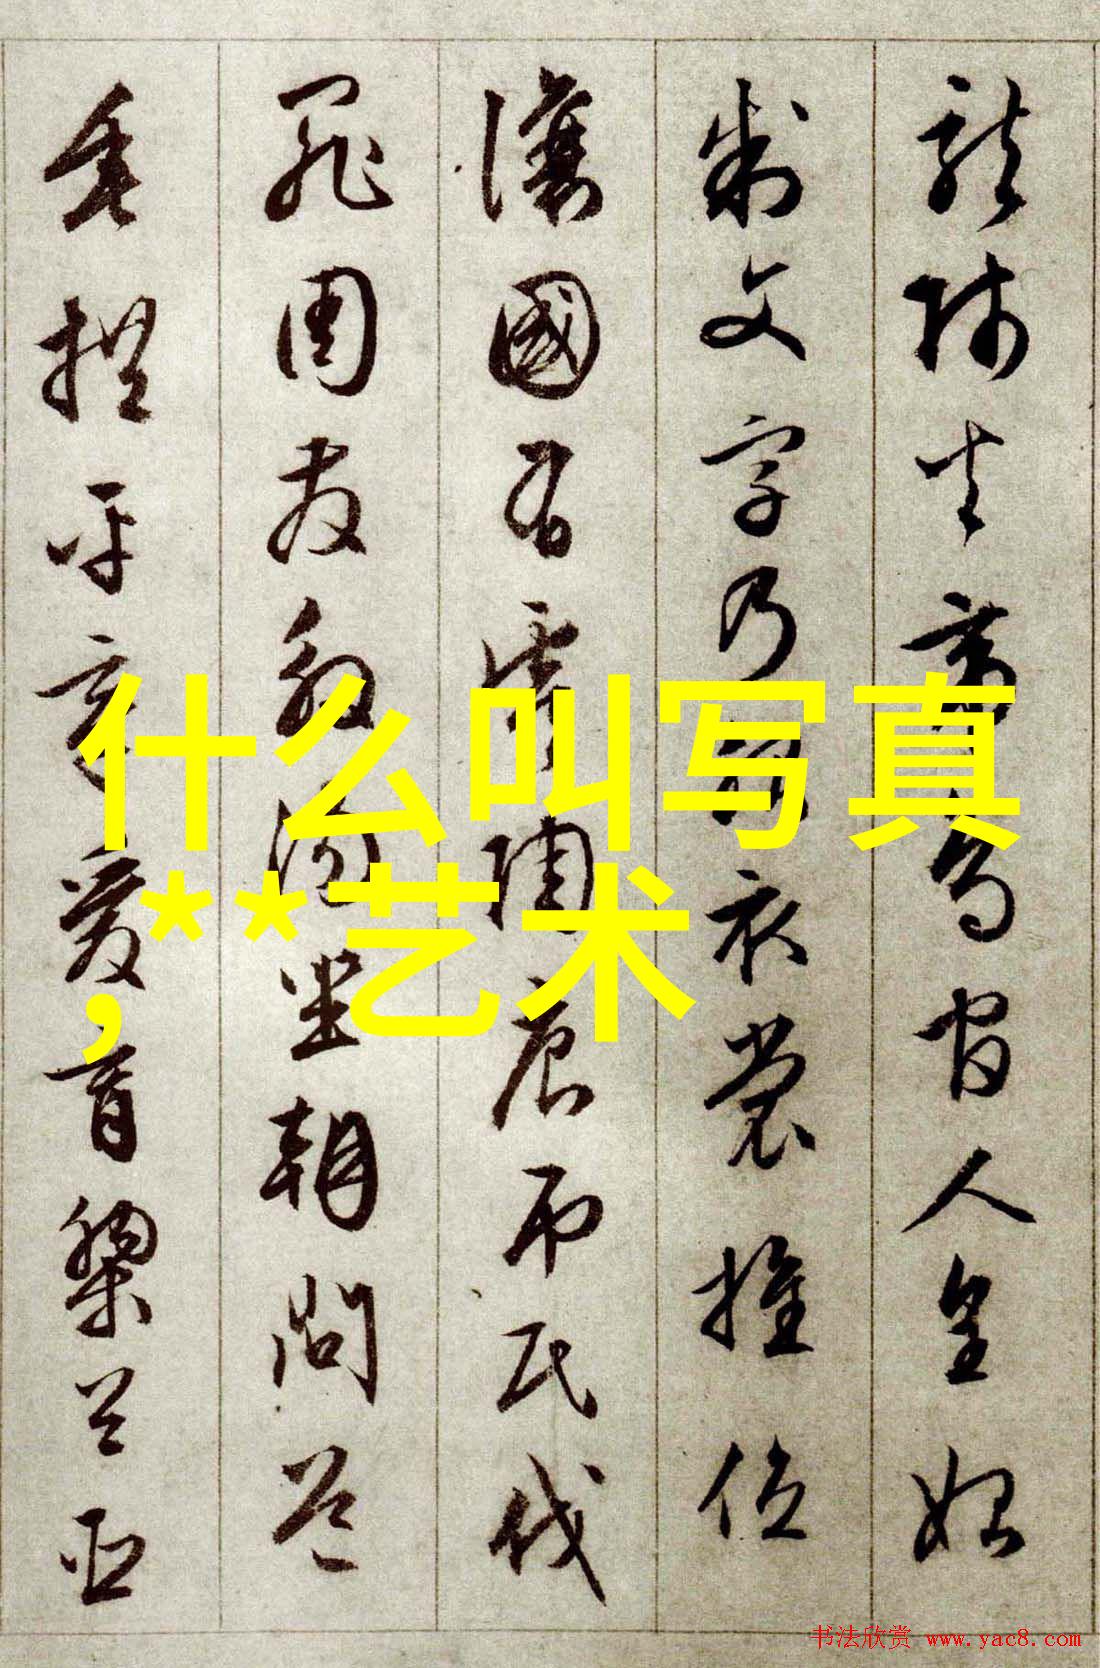 龍師火帝鳥官人皇始
制文字乃服衣裳推位
讓國有虞陶唐弔民伐
罪周發殷湯坐朝問道
垂拱平章愛育黎首臣
什么叫写真
，**艺术
书法欣赏 www.yac8.com